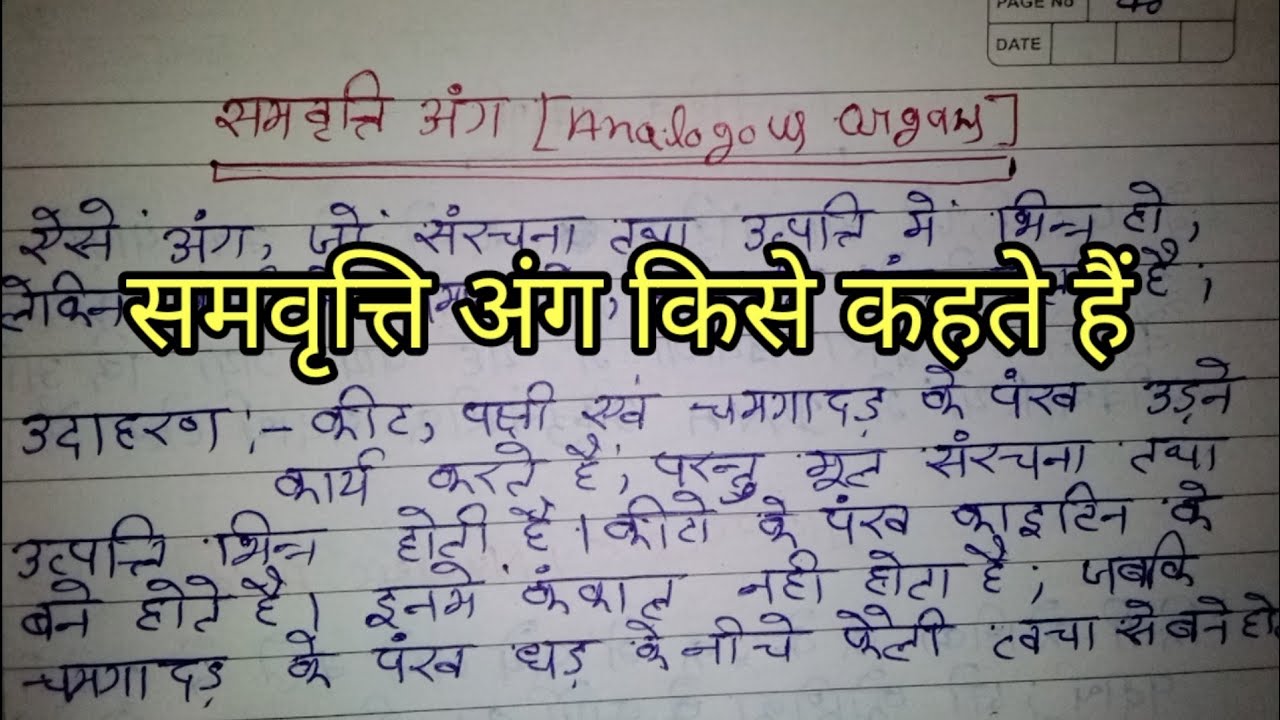 PAGE No
DATE
समवृत्ति अंग [Analogous organs]
ऐसे अंग, जो संरचना तथा उत्पत्ति में भिन्न हो,
लेकिन है,
समवृत्ति अंग किसे कहते हैं
उदाहरण :- कीट, पक्षी एवं चमगादड़ के पंख उड़ने
कार्य करते है, परन्तु मूल संरचना तथा
उत्पत्ति भिन्न होती है। कीटो के पंख काइटिन के
बने होते है। इनमे कंकाल नही होता है, जबकि
चमगादड़ के पंख धड़ के नीचे फैली त्वचा से बने हो